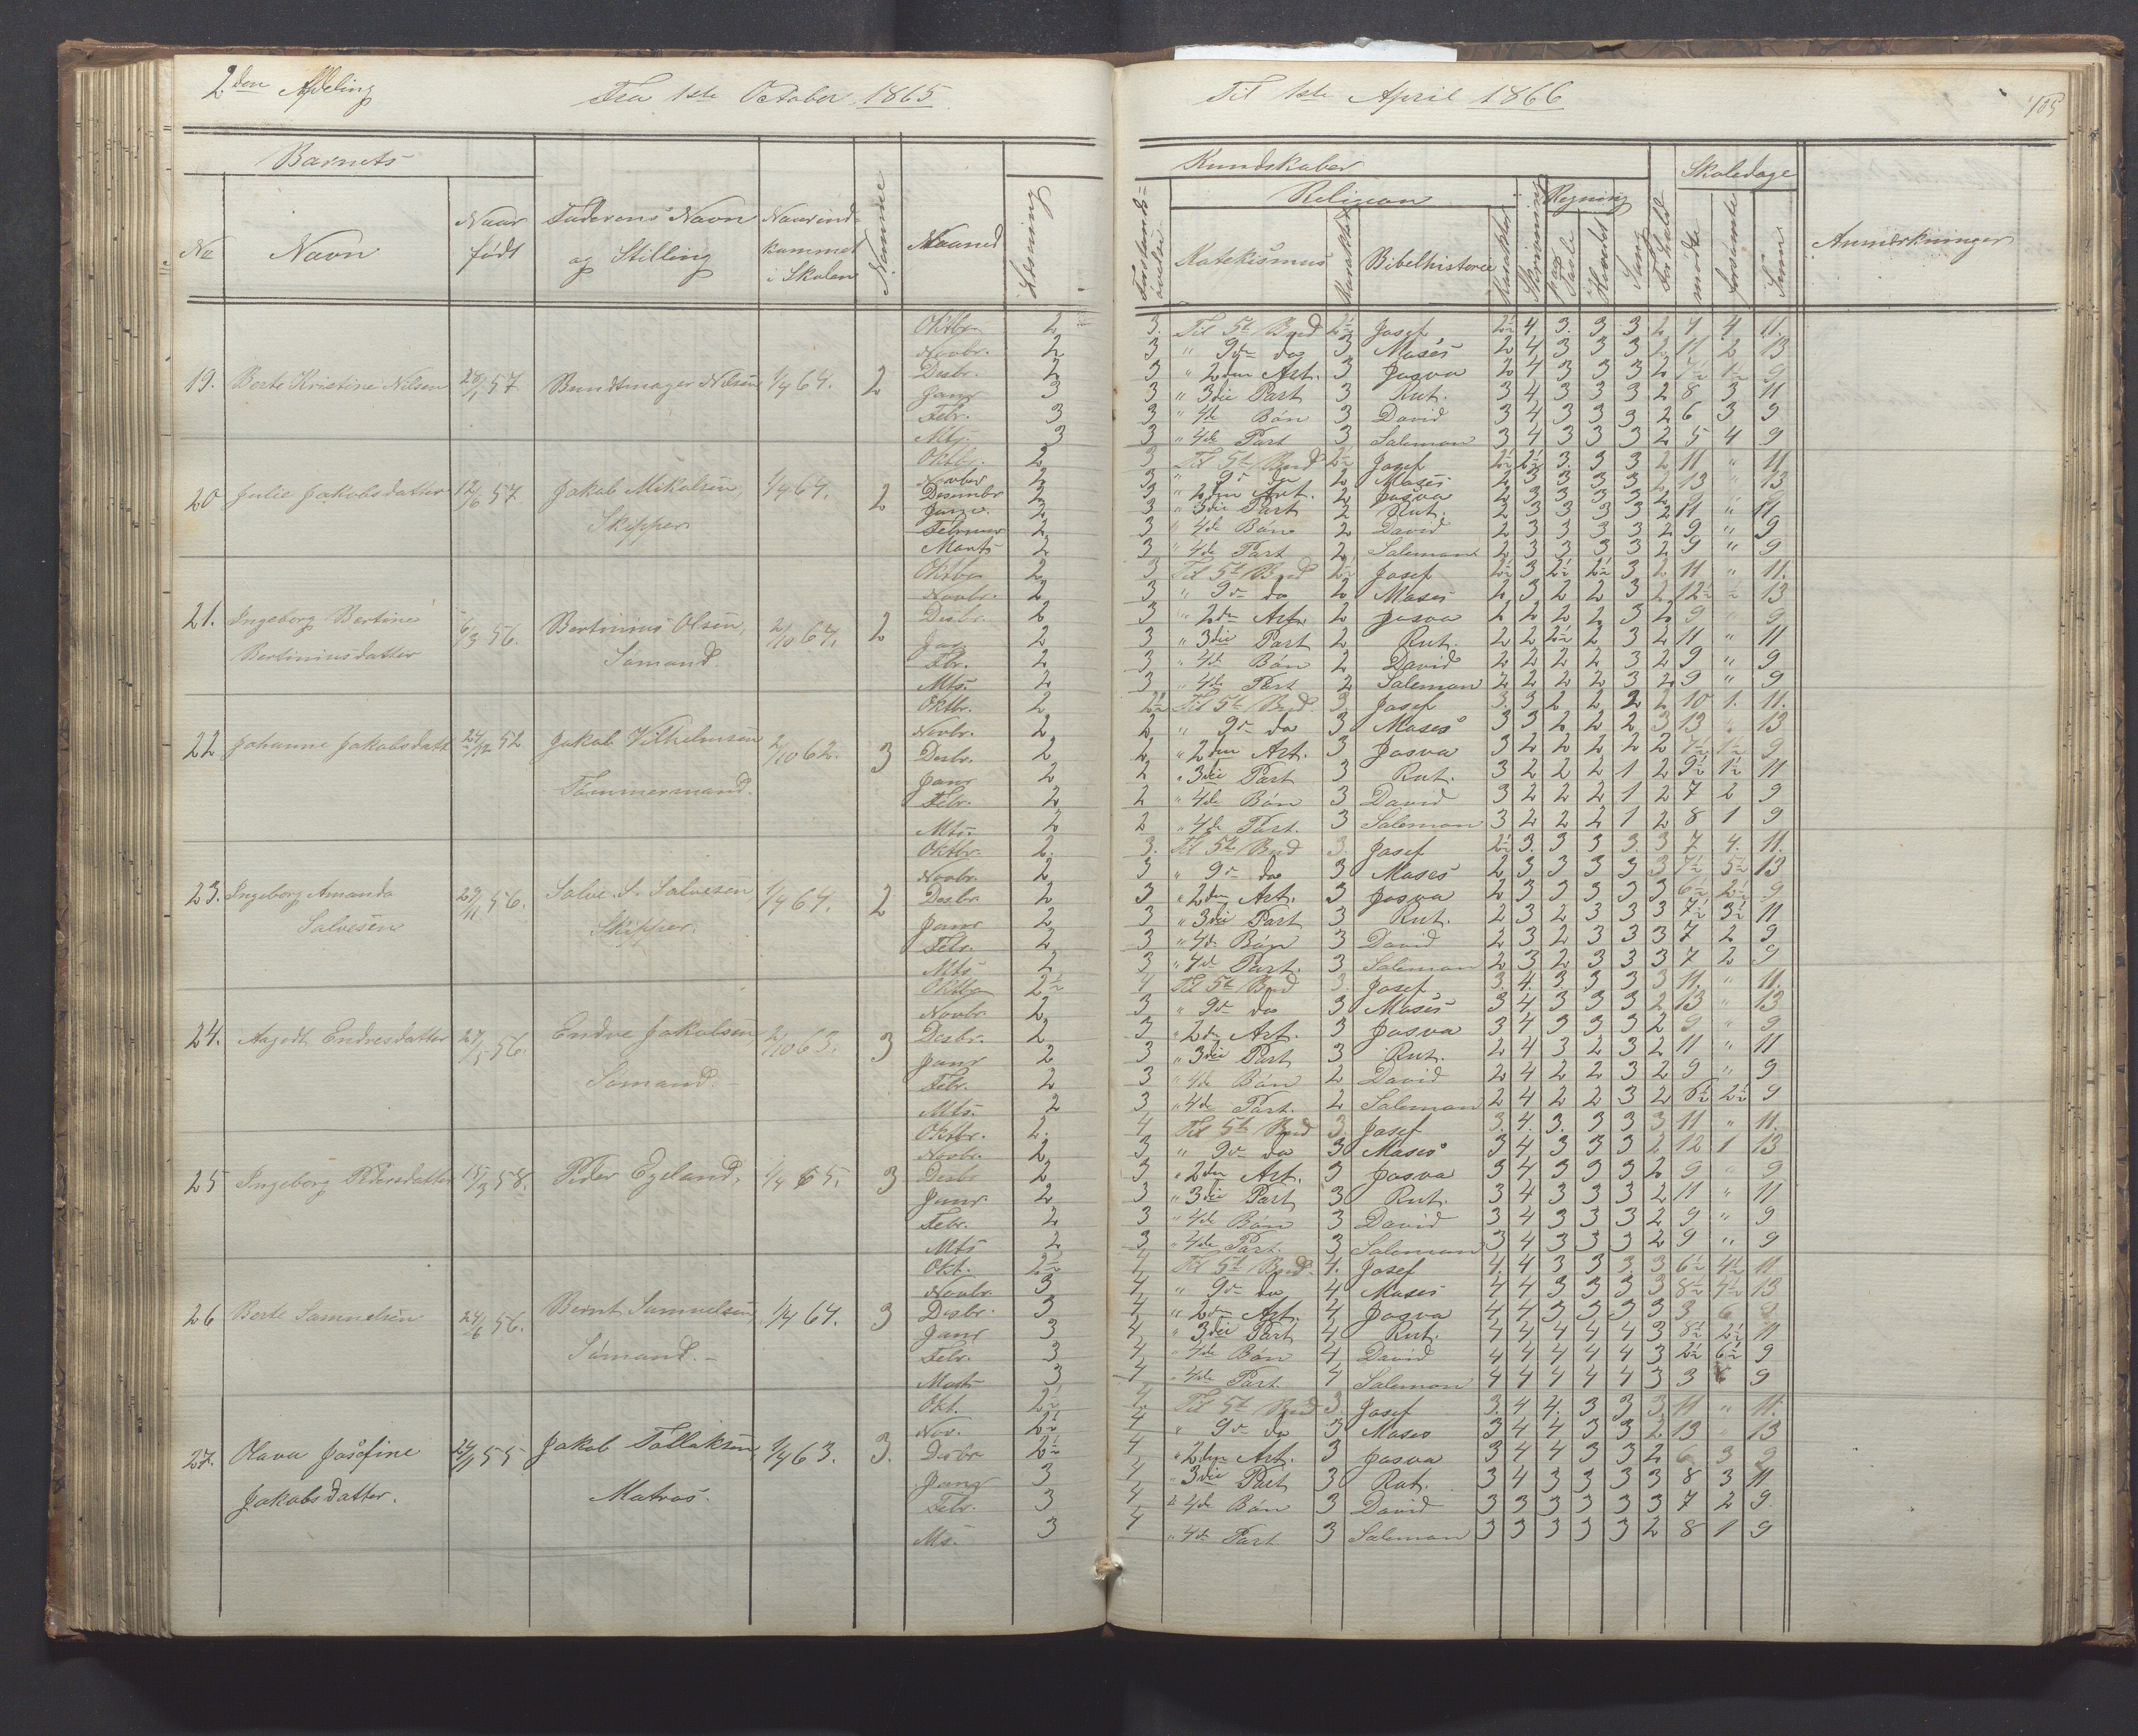 2den Afdeling
Fra 1ste October 1865
Til 1ste April 1866
105
Barnets
Kundskaber
Skoledage
Religion
Regning
No
Navn
Naar født
Faderens Navn og Stilling
Naar indkommet i Skolen
Nemme
Maaned
Læsning
Forstandsøvelse
Katekismus
Karakter
Bibelhistorie
Karakter
Skrivning
paa Tavle
i Hovedet
Sang
Forhold
mødte
forsømte
Sum
Anmærkninger
19. Berte Kristine Nilsen 28/1 57 Bundtmager Nilsen 1/4 64. 2
Oktbr. 2 3. Til 5te Bud 2½ Josef 2½ 4 3. 3 3 2 7 4 11.
Novbr. 2 3 " 9de do 3 Moses 2 4 3 3 3 2 11 2 13
Desbr. 2 3 " 2den Art. 3 Josva 2 4 3 3 3 2 7½ 1½ 9
Janr 3 3 " 3die Part 3 Rut. 3 4 3 3 3 2 8 3 11
Febr. 3 3 " 4de Bøn 3 David 3 4 3 3 3 2 6 3 9
Mts. 3 3 " 4de Part 3 Salomon 3 4 3 3 3 2 5 4 9
20 Julie Jakobsdatter 12/6 57 Jakob Mikalsen, Skipper 1/4 64. 2
Oktbr. 2 3 Til 5te Bud 2½ Josef 2½ 2½ 3. 3 3 2 11 " 11
Novber 2 3 " 9de do 2 Moses 2 3 3 3 3 2 13 " 13
Desember 2 3 " 2den Art. 2 Josva 2 3 3 3 3 2 9 " 9
Janr. 2 3 " 3die Part 2 Rut. 2 3 3 3 3 2 11 " 11
Februar 2 3 " 4de Bøn 2 David 2 3 3 3 3 2 9 " 9
Marts 2 3 " 4de Part 2 Salomon 2 3 3 3 3 2 9 " 9
21. Ingeborg Bertine Bertiniusdatter 6/3 56. Bertinius Olsen, Sømand. 2/10 64. 2
Oktbr 2 3 Til 5te Bud 2½ Josef 2½ 3 2½ 2½ 3 2 11 " 11.
Novbr. 2 3 " 9de do 2 Moses 2 3 2 2 3 2 12½ ½ 13
Desbr. 2 3 " 2den Art. 2 Josva 2 2 2 2 3 2 9 " 9
Jan 2 3 " 3die Part 2 Rut. 2 2 2½ 2 3 2 11 " 11
Fbr. 2 3 " 4de Bøn 2 David 2 2 2 2 3 2 9 " 9
Mts. 2 3 " 4de Part 2 Salomon 2 2 2 2 3 2 9 " 9
22 Johanne Jakobsdatt 24/12 52 Jakob Vilhelmsen Tømmermand. 2/10 62. 3
Oktbr. 2 2½ Til 5te Bud. 3. Josef 3. 3 2 2 2 2 10 1. 11.
Novbr. 2 2 " 9de do 3 Moses 3 3 2 2 2 3 13 " 13
Desbr. 2 2 " 2den Art. 3 Josva 3 2 2 2 2 2 7½ 1½ 9
Janr 2 2 " 3die Part 3 Rut. 3 2 2 2 1 2 9½ 1½ 11
Febr. 2 2 " 4de Bøn 3 David 3 2 2 2 1 2 7 2 9
Mts. 2 2 " 4de Part. 3 Salomon 3 2 2 2 1 2 8 1 9
23. Ingeborg Amanda Salvesen 29/11 56. Salve S. Salvesen, Skipper. 1/4 64. 2
Oktbr. 2. 3. Til 5te Bud 3. Josef 2½ 3. 3 3 3. 3 7 4. 11.
Novbr. 2 3 " 9de do 3 Moses 2 3 3 3 3 3 7½ 5½ 13
Desbr. 2 3 " 2den Art. 3 Josva 2 3 3 3 3 3 6½ 2½ 9
Janr 2 3 " 3die Part 3 Rut. 2 3 2 3 3 3 7½ 3½ 11
Febr. 2 3 " 4de Bøn 3 David 2 3 2 3 3 3 7 2 9
Mts 2 3 " 4de Part. 3 Salomon 2 3 2 3 3 3 7 2 9
24. Aagodt Endresdatter 27/5 56. Endre Jakobsen, Sømand. 2/10 63. 3
Oktbr 2½ 4 Til 5te Bud 3. Josef 3. 4. 3. 3 3 3 11. " 11.
Novbr 2 3 " 9de do 3 Moses 3 4 3 3 3 2 13 " 13
Desbr. 2 3 " 2den Art. 3 Josva 3 4 3 3 3 2 9 " 9
Janr 2 3 " 3die Part 3 Rut. 2 4 3 2 3 2 11 " 11
Febr. 2 3 " 4de Bøn 2 David 2 4 2 2 3 2 9 " 9
Mts. 2 3 " 4de Part. 2 Salomon 2 4 2 2 3 2 6½ 2½ 9
25 Ingeborg Pedersdatter 15/3 58. Peder Egeland, 1/4 65. 3
Oktbr. 2. 4 Til 5te Bud 3. Josef 3. 4. 3. 3 3 3 11 " 11.
Novbr. 2 3 " 9de do 3 Moses 3 4 3 3 3 2 12 1 13
Desbr 2 3 " 2den Art. 3 Josva 3 4 3 3 3 2 9 " 9
Janr. 2 3 " 3die Part 3 Rut. 3 4 3 3 3 2 11 " 11
Febr. 2 3 " 4de Bøn 3 David 3 4 3 3 3 2 9 " 9
Mts 2 3 " 4de Part. 3 Salomon 3 4 3 3 3 2 9 " 9
26 Berte Samuelsen 24/6 56. Bernt Samuelsen, Sømand. 1/4 64. 3
Okt. 2½ 4 Til 5te Bud. 4. Josef 4. 4 3 3 3. 3 6½ 4½ 11
Novbr. 3 4 " 9de do 4 Moses 4 4 3 3 3 3 8½ 4½ 13
Desbr. 3 4 " 2den Art. 4 Josva 4 4 3 3 3 3 3 6 9
Janr 3 4 " 3die Part 4 Rut. 4 4 4 4 4 3 8½ 2½ 11
Febr. 3 4 " 4de Bøn 4 David 4 4 4 4 4 3 2½ 6½ 9
Marts 3 4 " 4de Part. 4 Salomon 4 4 4 4 4 3 3 6 9
27. Olava Josefine Jakobsdatter. 24/1 55 Jakob Tollaksen, Matros. 1/4 63. 3.
Okt. 2½ 4. Til 5te Bud 3. Josef 3. 4 4. 3 3 3 11 " 11.
Nov. 2½ 4 " 9de do 3 Moses 3 4 4 3 3 2 13 " 13
Desbr 2½ 4 " 2den Art. 3 Josva 3 4 4 3 3 2 6 3 9
Janr 3 4 " 3die Part 3 Rut. 3 4 3 3 3 3 8 3 11
Febr. 3 4 " 4de Bøn 3 David 3 3 3 3 3 3 7 2 9.
Ms. 3 4 " 4de Part 3 Salomon 3 3 3 3 3 2 8 1 9